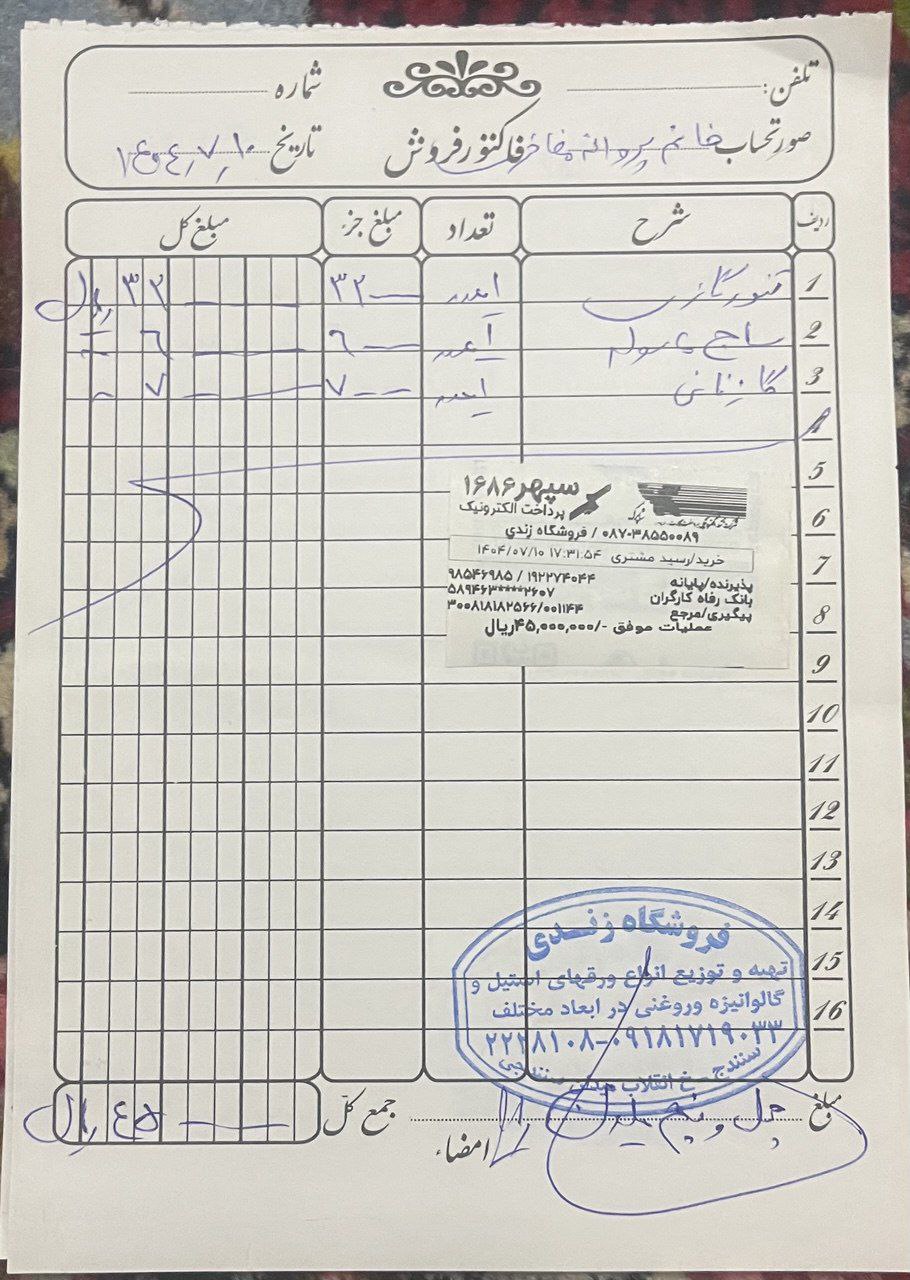 تلفن: شماره
صورتحساب خانم پروانه فاکتور فروش تاریخ ۱۴۰۴,۷,۱۰
ردیف شرح تعداد مبلغ جز مبلغ کل
1 تنور گازی ۱عدد ۳۲ ۳۲ ریال
2 ساج ۱عدد ۶ ۶
3 گاز نانی ۱عدد ۷ ۷
4
5
6
7
8
9
10
11
12
13
14
15
16
سپهر ۱۶۸۶
پرداخت الکترونیک
۰۸۷-۳۸۵۵۰۰۸۹ / فروشگاه زندی
خرید/رسید مشتری ۱۴۰۴/۰۷/۱۰ ۱۷:۳۱:۵۴
پذیرنده/پایانه ۹۸۵۴۶۹۸۵ / ۱۹۲۲۷۴۰۴۴
بانک رفاه کارگران ۵۸۹۴۶۳****۲۶۰۷
پیگیری/مرجع ۳۰۰۸۱۸۱۸۲۵۶۶/۰۰۱۱۴۴
عملیات موفق -/۴۵,۰۰۰,۰۰۰ریال
فروشگاه زندی
تهیه و توزیع انواع ورقهای استیل و
گالوانیزه وروغنی در ابعاد مختلف
۲۲۲۸۱۰۸-۰۹۱۸۱۷۱۹۰۳۳
سنندج - خ انقلاب
مبلغ چهل و پنج میلیون جمع کل ۴۵ ریال
امضاء